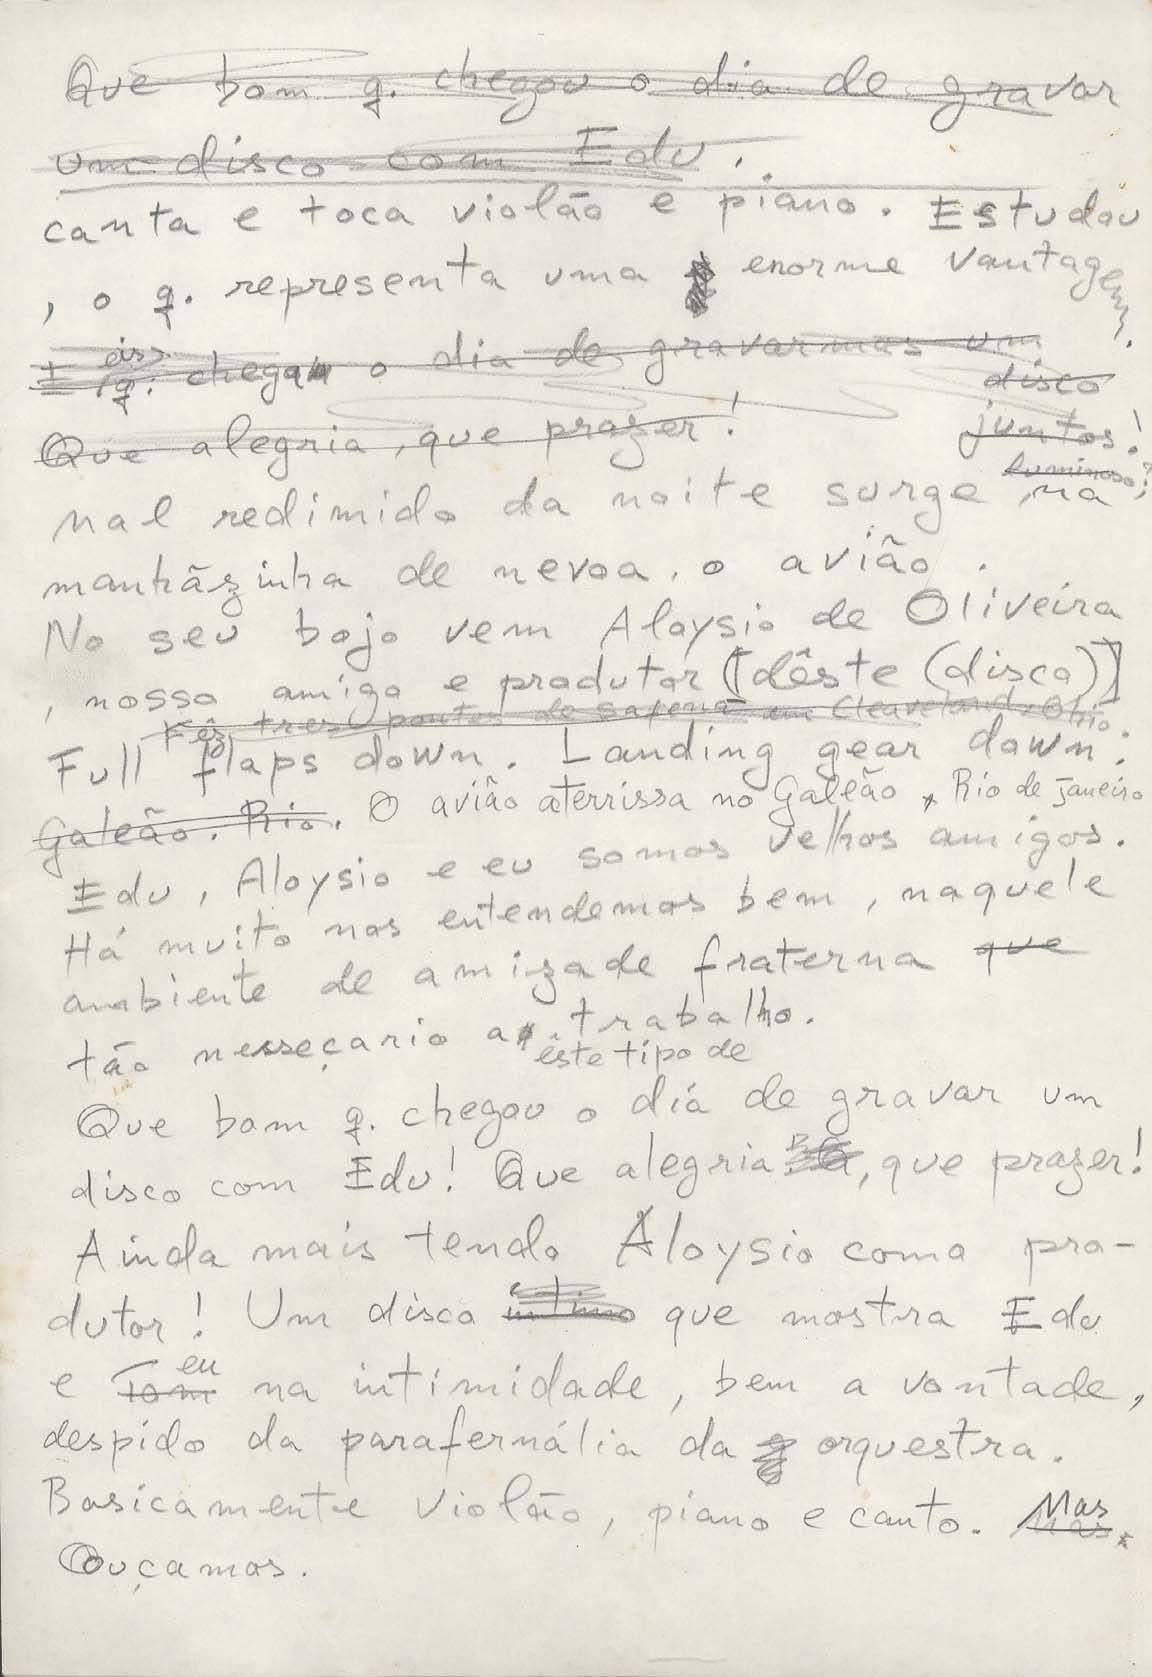 Que bom q. chegou o dia de gravar
um disco com Edu.
canta e toca violão e piano. Estudou
, o q. representa uma enorme vantagem.
E eis q. chega o dia de gravarmos um
disco
juntos!
Que alegria, que prazer!
luminoso?
nal redimido da noite surge, na
manhãzinha de nevoa, o avião.
No seu bojo vem Aloysio de Oliveira
, nosso amigo e produtor [dêste (disco)]
Fêz tres pontes de safena em Cleaveland, Ohio.
Full flaps down. Landing gear down.
Galeão. Rio. O avião aterrissa no Galeão, Rio de janeiro
Edu, Aloysio e eu somos velhos amigos.
Há muito nos entendemos bem, naquele
ambiente de amizade fraterna que
tão nesseçario a trabalho.
êste tipo de
Que bom q. chegou o diá de gravar um
disco com Edu! Que alegria, que prazer!
Ainda mais tendo Aloysio como pro-
dutor! Um disco intimo que mostra Edu
eu
e Tom na intimidade, bem a vontade,
despido da parafernália da orquestra.
Basicamente violão, piano e canto. Mas
Mas.
Ouçamos.